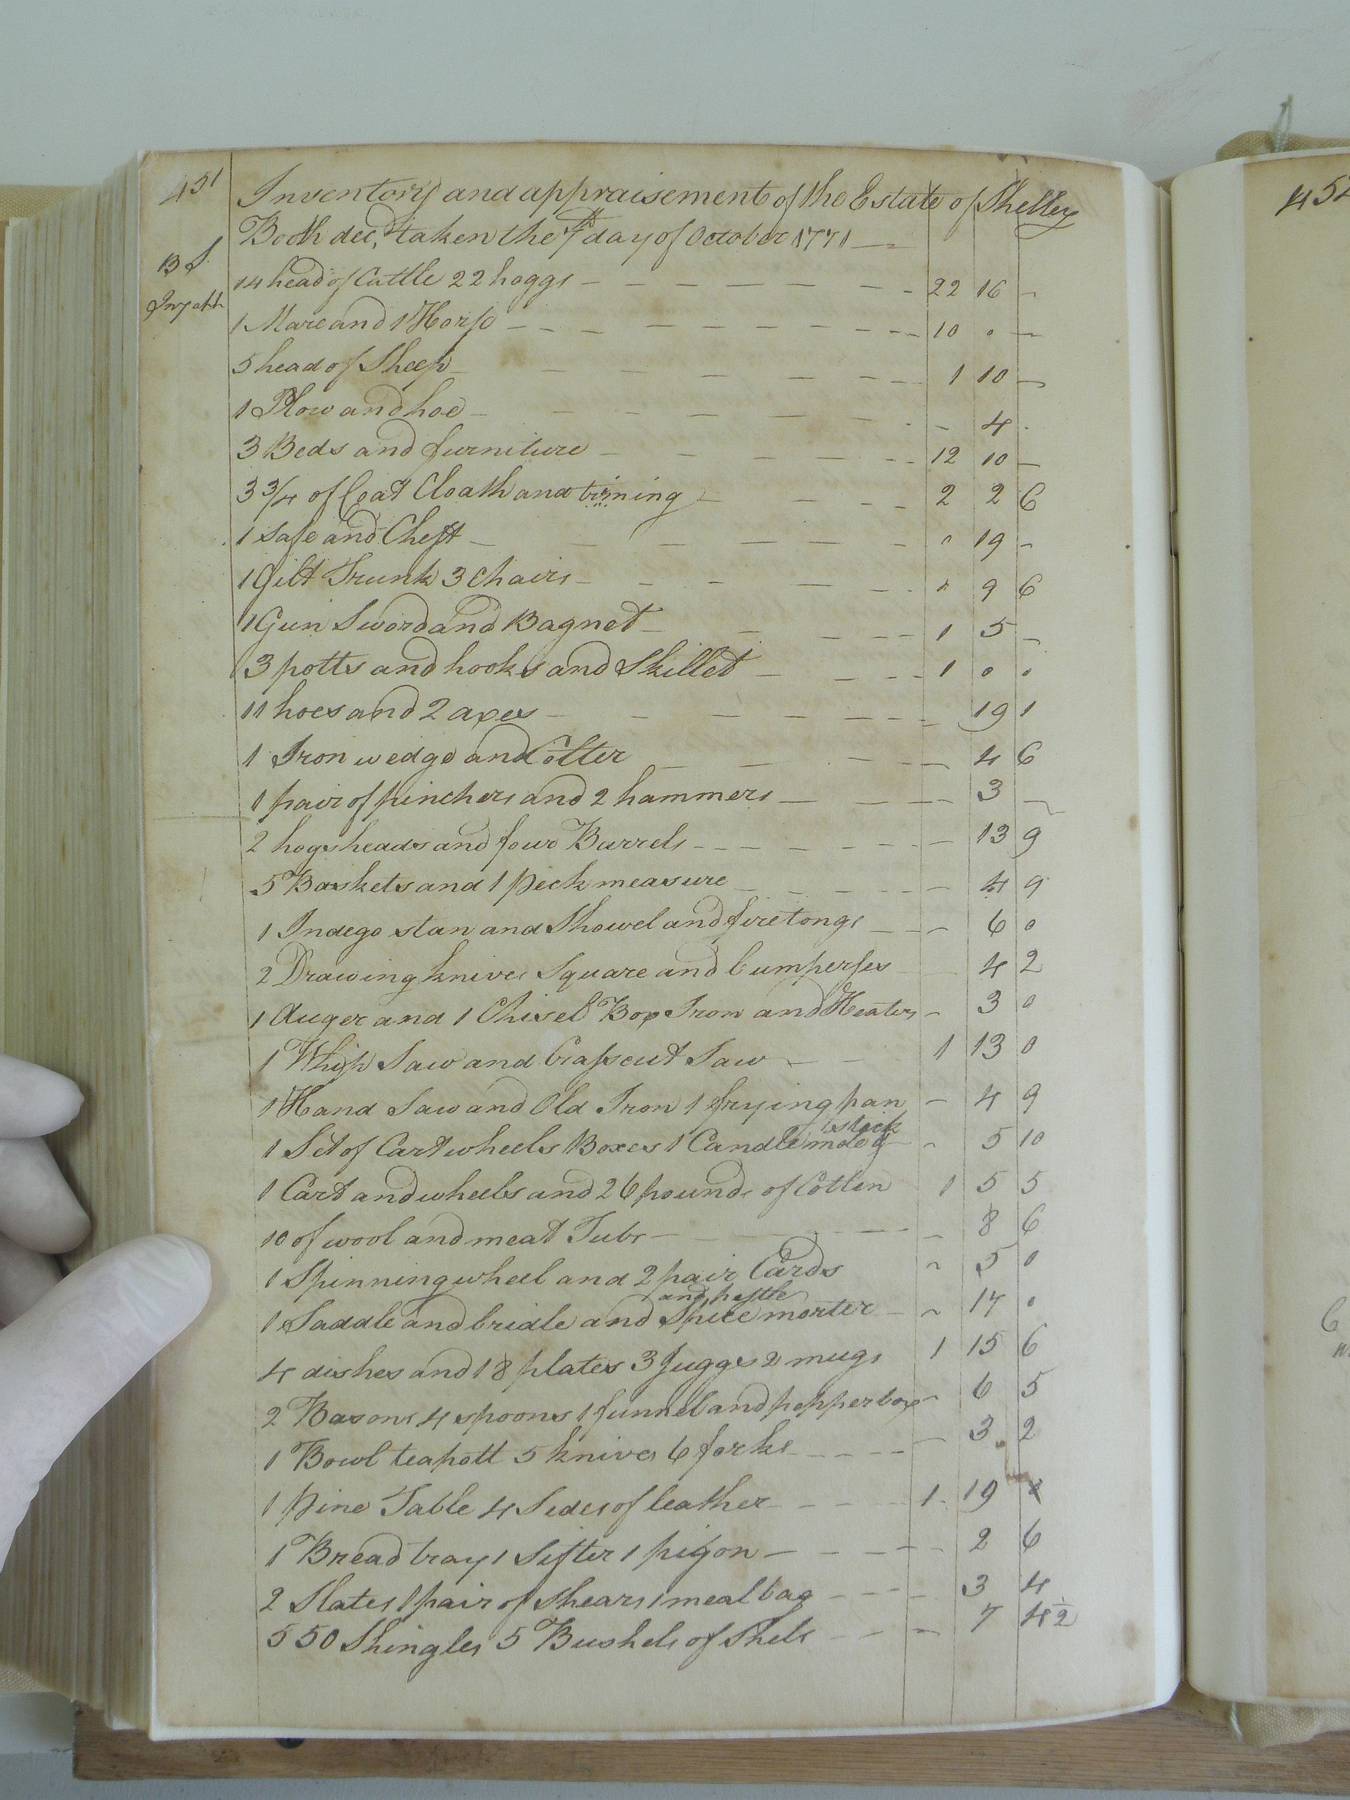 451
Inventory and appraisement of the Estate of Shelley
Booth dec,d taken the 7th day of October 1771
B S
14 head of Cattle 22 hoggs 22 16 -
1 Mare and 1 Horse 10 0 -
5 head of Sheep 1 10 -
1 Plow and hoe - 4
3 Beds and furniture 12 10 -
3 3/4 of Coat Cloath and triming 2 2 6
1 safe and Chest 0 19 -
1 Gilt Trunk 3 Chairs - 9 6
1 Gun Sword and Bagnet 1 5 -
3 potts and hooks and Skillet 1 0 0
11 hoes and 2 axes - 19 1
1 Iron wedge and Colter - 4 6
1 pair of pinchers and 2 hammers - 3 -
2 hogsheads and four Barrels - 13 9
5 Baskets and 1 peck measure - 4 9
1 Indego stan and Showel and fire tongs - 6 0
2 Drawing knives Square and Cumperses 4 2
1 Auger and 1 Chisel Box Iron and Heaters - 3 0
1 Whip Saw and Crasscut Saw 1 13 0
1 Hand Saw and Old Iron 1 frying pan - 4 9
stick
1 Set of Cart wheels Boxes 1 Candle mold - 5 10
1 Cart and wheels and 26 pounds of Cotten 1 5 5
10 of wool and meat Tubs - 8 6
1 Spinning wheel and 2 pair Cards - 5 0
and pestle
1 Saddle and bridle and Spice morter - 14 0
4 dishes and 18 plates 3 Juggs 2 mugs 1 15 6
2 Basons 4 spoons 1 funnel and pepper box - 6 5
1 Bowl teapott 5 knives 6 forks - 3 2
1 pine Table 4 Sides of leather 1 19
1 Bread tray 1 Sifter 1 pigon - 2 6
2 Slates 1 pair of shears 1 meal bag - 3 4
550 Shingles 5 Bushels of Shels - 7 4 1/2
452